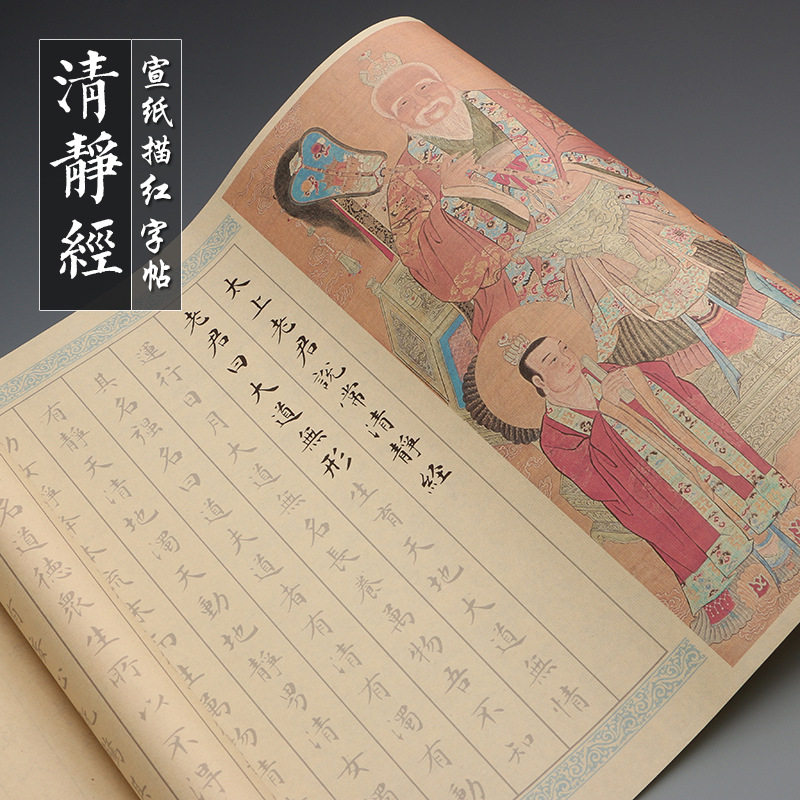 清靜經
宣纸描红字帖
太上老君說常清靜經
老君曰大道無形生育天地大道無情
運行日月大道無名長養萬物吾不知
其名强名曰道夫道者有清有濁有動
有靜天清地濁天動地靜男清女濁
女靜降本流末而生萬物清
名道德眾生所以不得